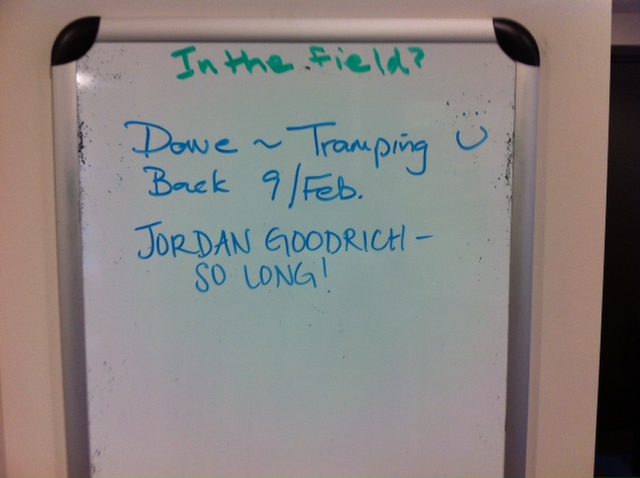 In the field?
Dowe ~ Tramping
Back 9/Feb.
JORDAN GOODRICH –
SO LONG!